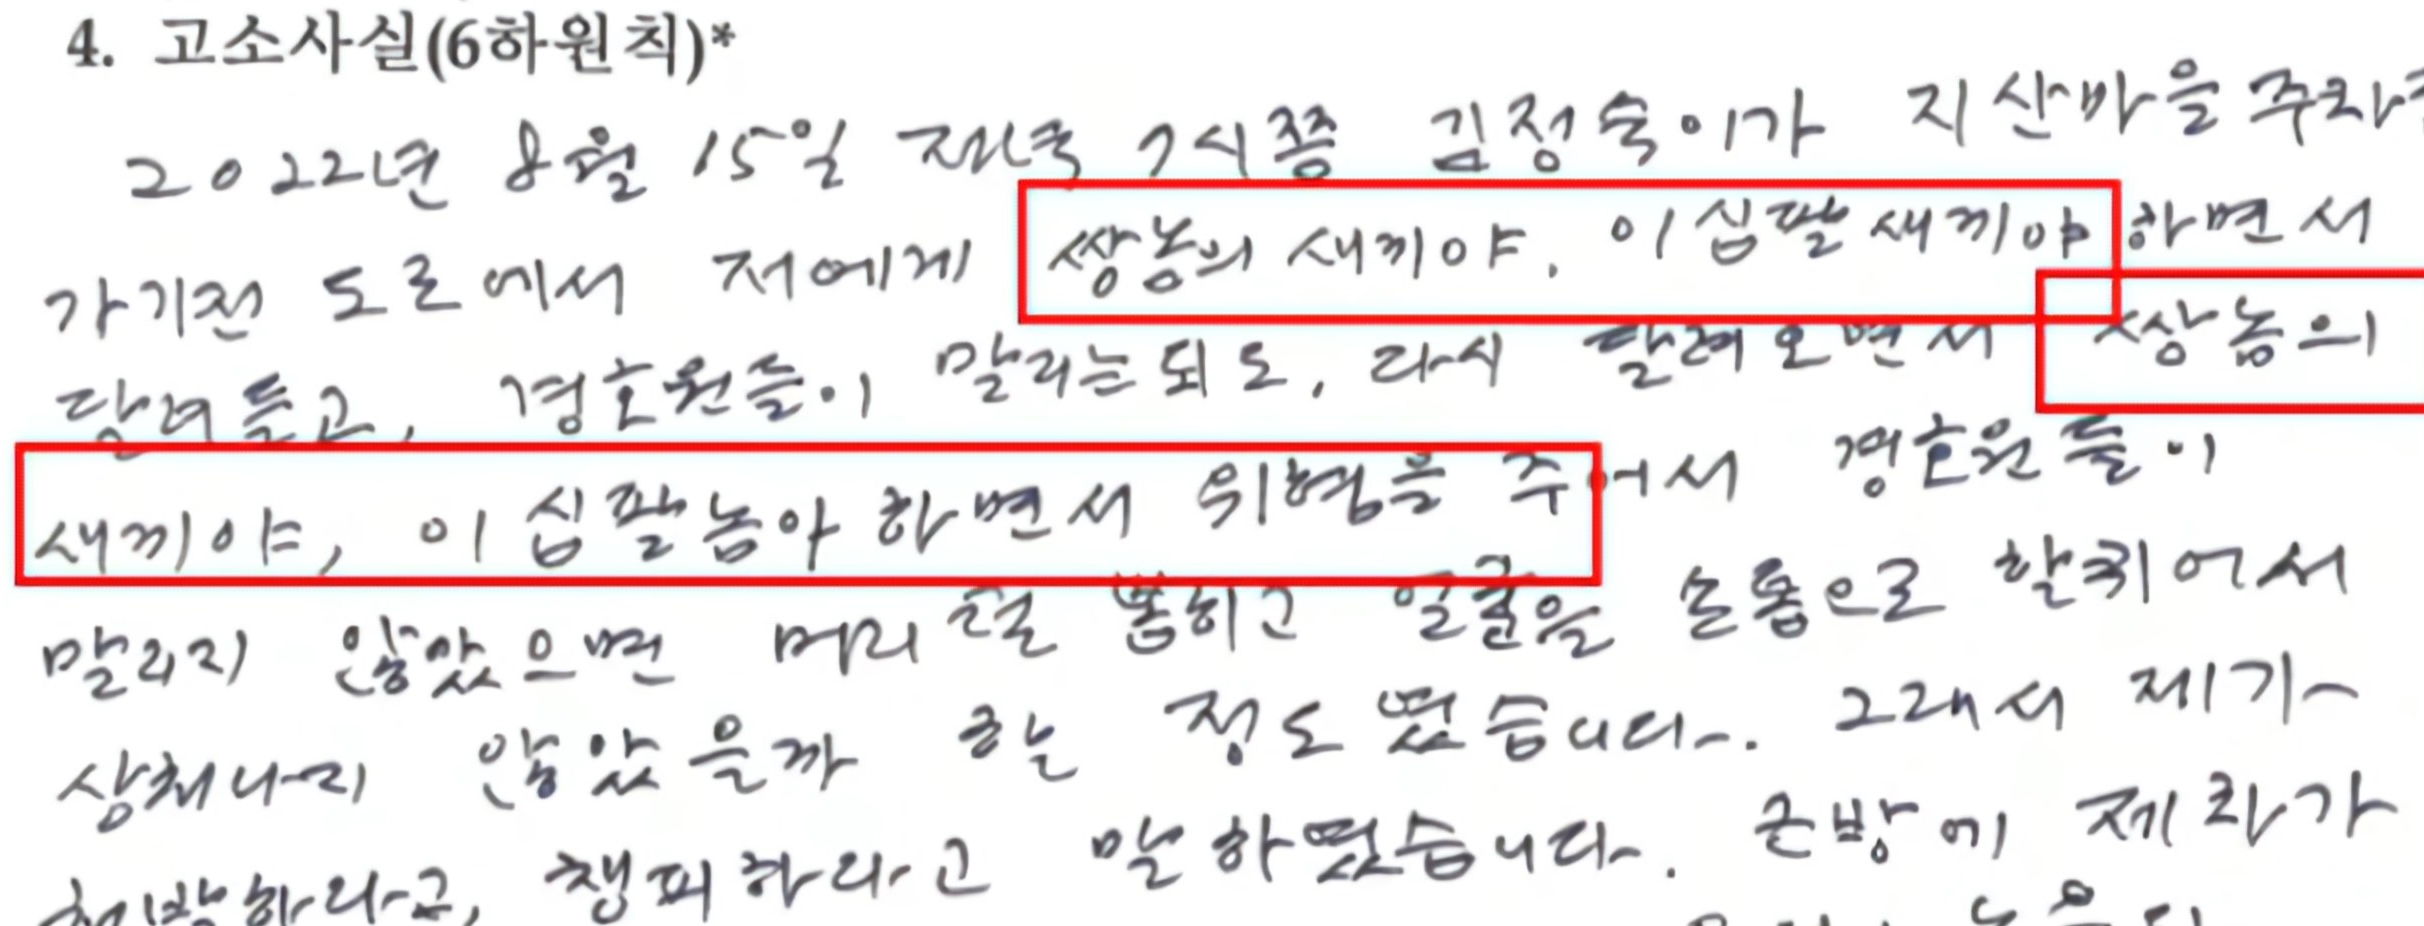 4. 고소사실(6하원칙)*
2022년 8월 15일 저녁 7시쯤 김정숙이가 지산마을 주차
가기전 도로에서 저에게 쌍놈의 새끼야, 이 십팔새끼야 하면서
달려들고, 경호원들이 말리는되도, 다시 달려오면서 쌍놈의
새끼야, 이 십팔놈아 하면서 위협을 주어서 경호원들이
말리지 않았으면 머리 뽑히고 얼굴을 손톱으로 할퀴어서
상처나지 않았을까 하는 정도였습니다. 그래서 제가
처벌하라고, 챙피하라고 말하였습니다. 근방에 제 차가